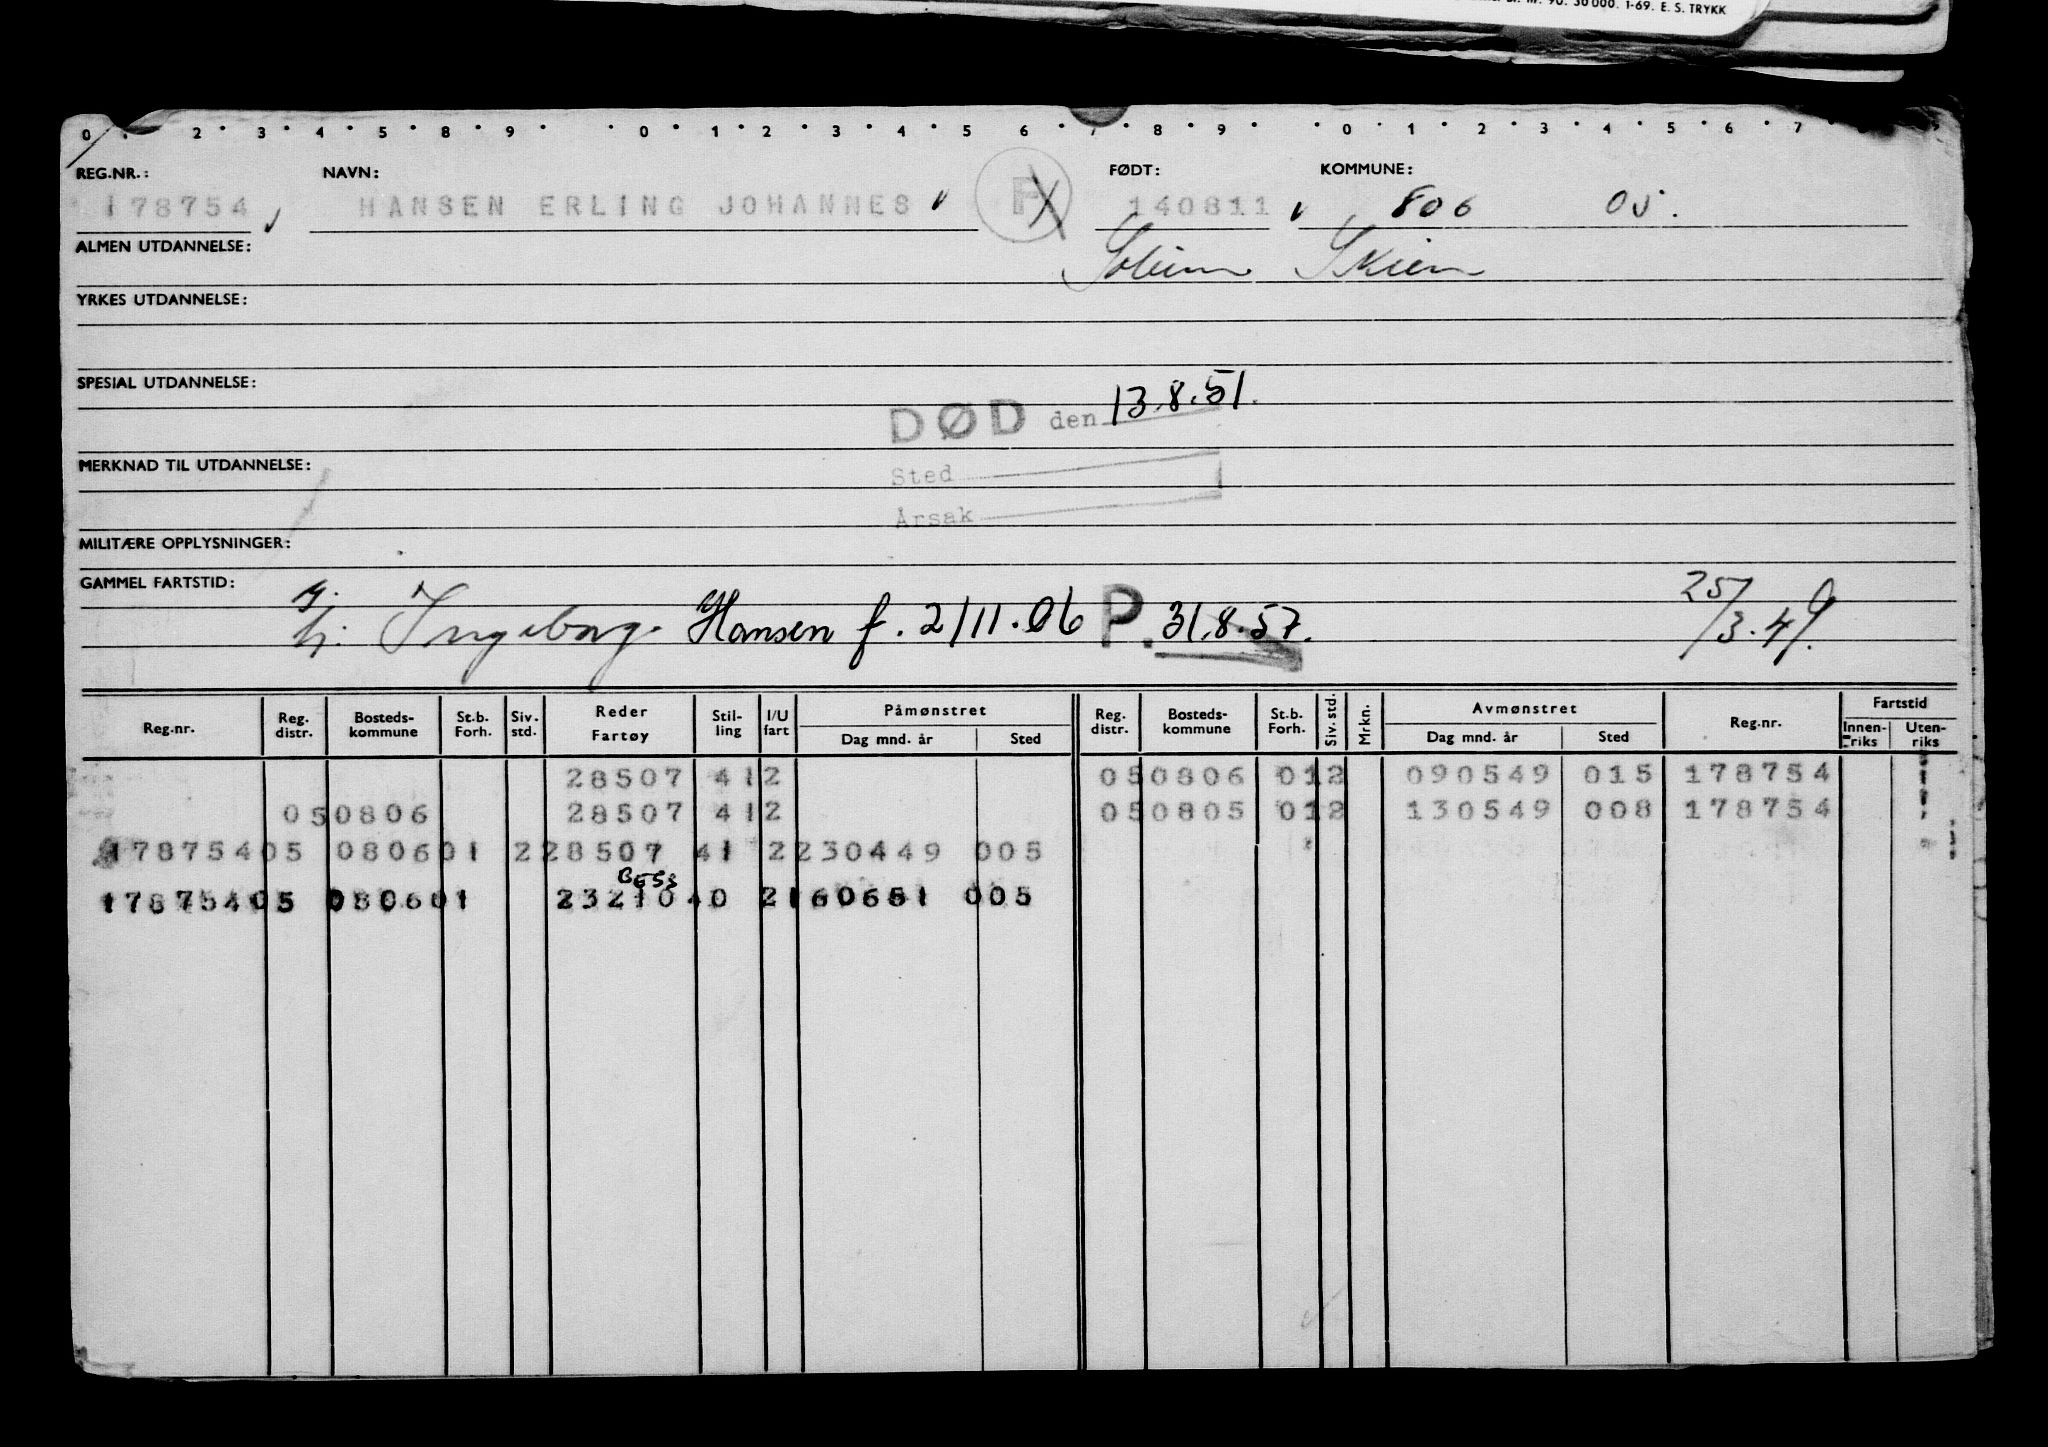 90. 30 000. 1-69. E. S. TRYKK
0 1 2 3 4 5 8 9 0 1 2 3 4 5 6 7 8 9 0 1 2 3 4 5 6 7
REG.NR.: NAVN: FØDT: KOMMUNE:
178754 HANSEN ERLING JOHANNES F 140811 806 05.
ALMEN UTDANNELSE: Solum Skien
YRKES UTDANNELSE:
SPESIAL UTDANNELSE:
DØD den 13.8.51.
MERKNAD TIL UTDANNELSE:
Sted
Årsak
MILITÆRE OPPLYSNINGER:
GAMMEL FARTSTID: g. 25/3.49.
h. Ingeborg Hansen f. 2/11.06 P. 31.8.57.
Reg.nr. Reg. distr. Bosteds-kommune St.b. Forh. Siv. std. Reder Fartøy Stil-ling I/U fart Påmønstret Dag mnd. år Sted Reg. distr. Bosteds-kommune St.b. Forh. Siv. std. Mrkn. Avmønstret Dag mnd. år Sted Reg.nr. Fartstid Innen-riks Uten-riks
28507 412 050806 012 090549 015 178754
050806 28507 412 050805 012 130549 008 178754
17875405 080601 228507 41 2230449 005
BESS
17875405 080601 2321040 2160651 005